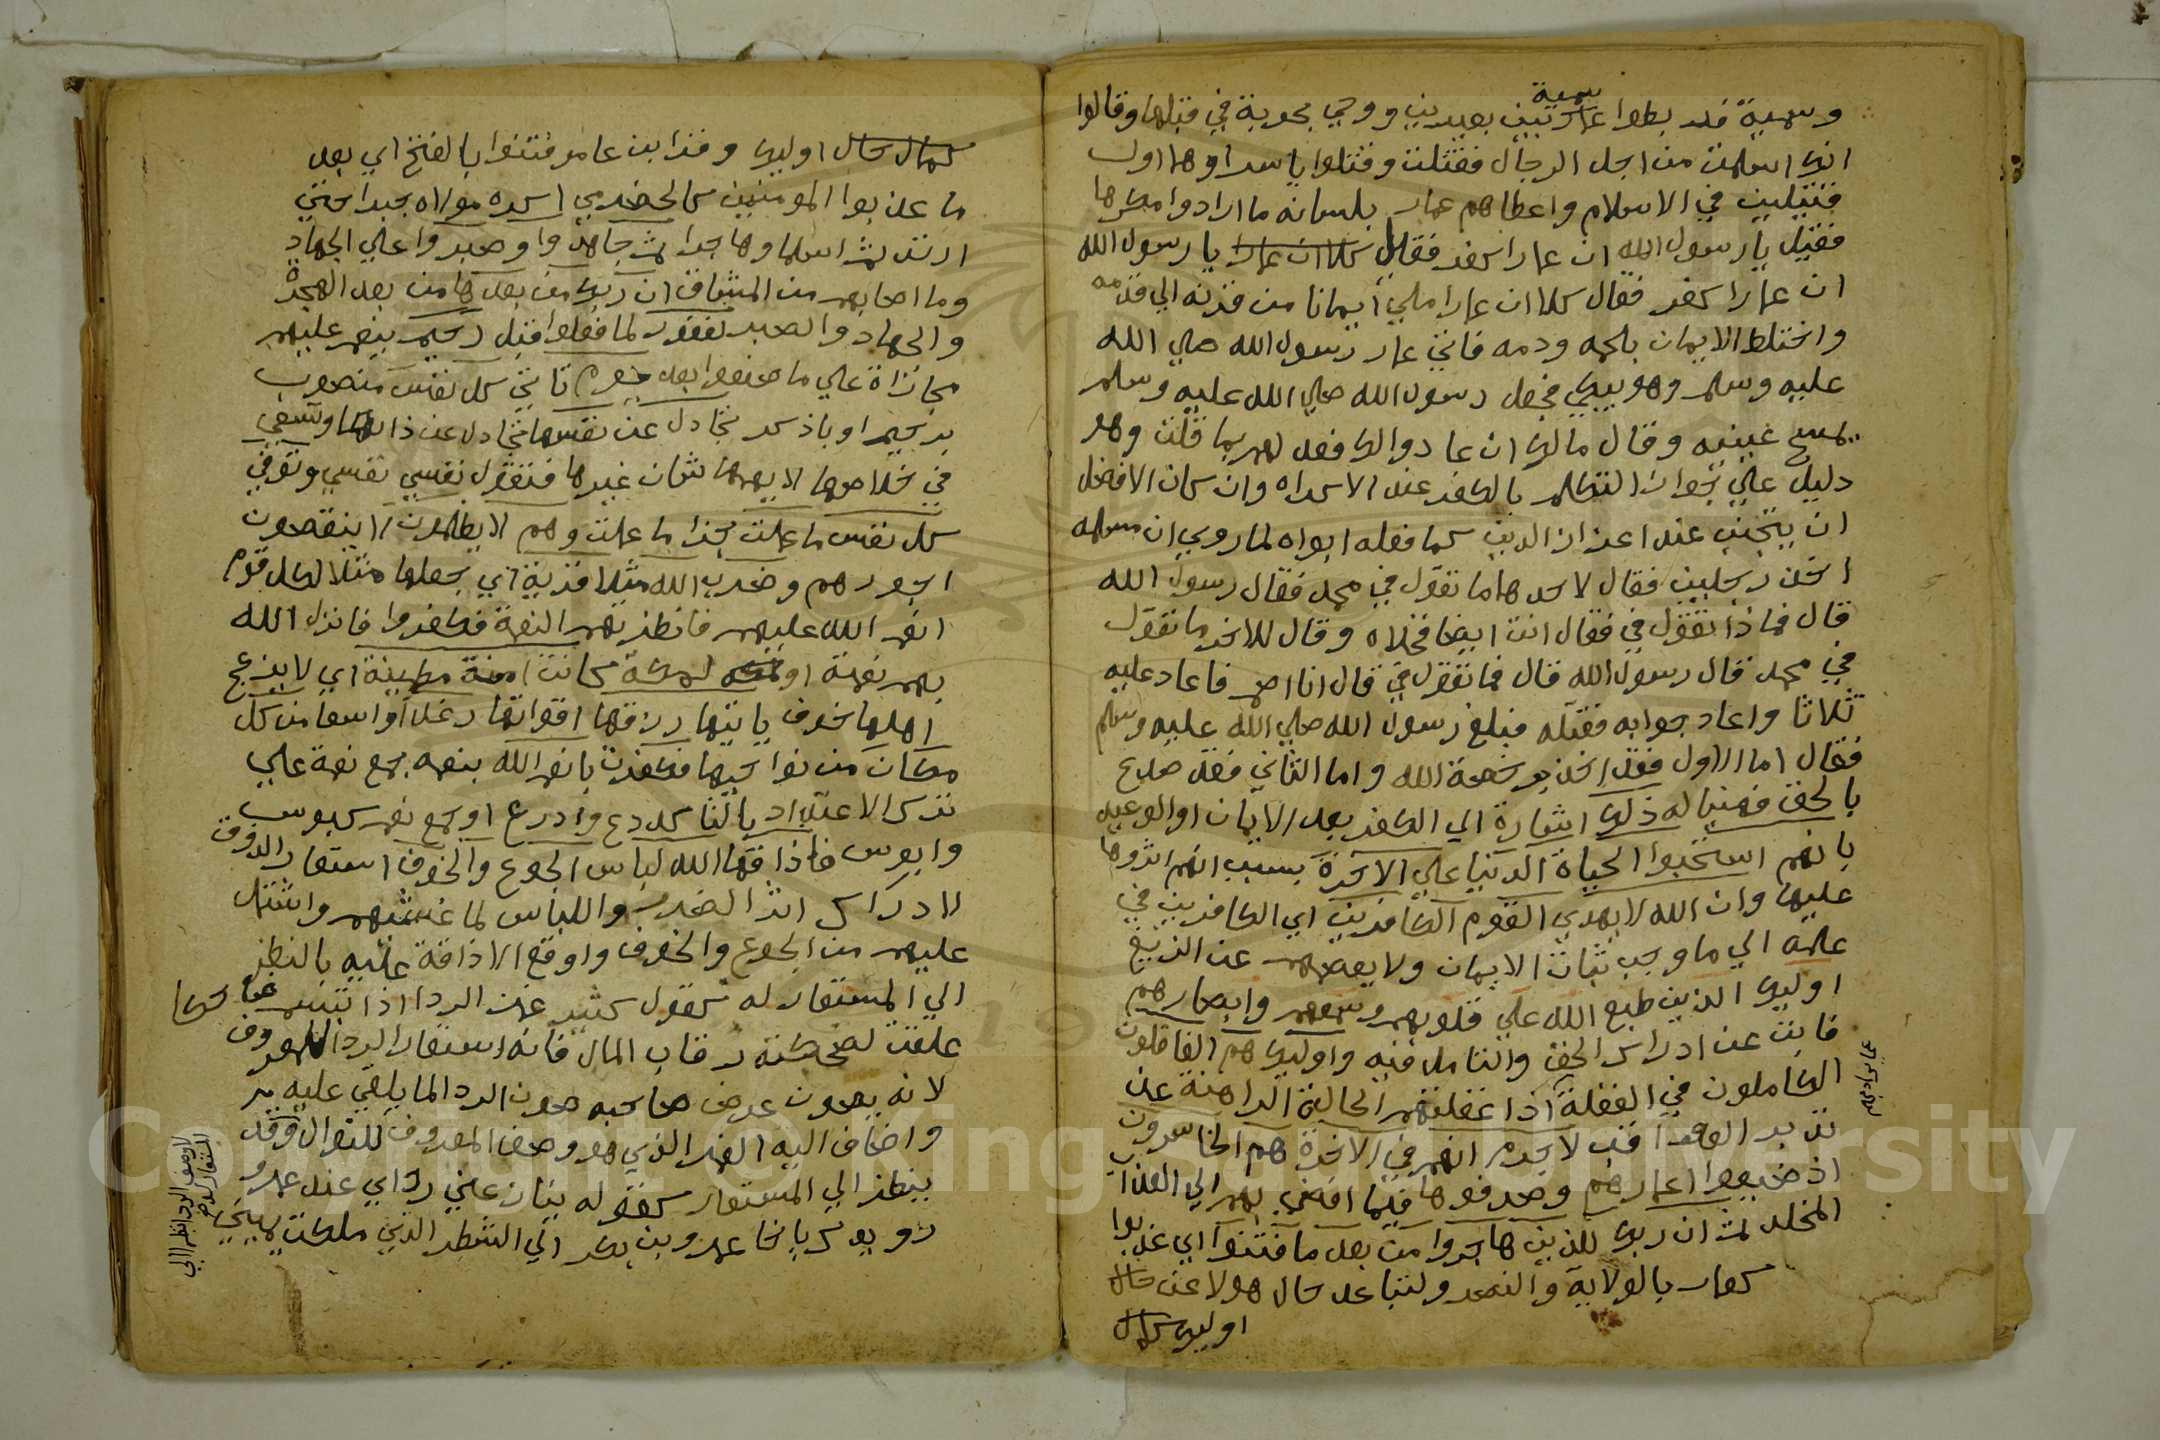 وسمية فقد ربطوا سمية بين بعيرين ووجي بحربة في قبلها وقالوا
انك اسلمت من اجل الرجال فقتلت وقتلوا ياسرا وهما اول
قتيلين في الاسلام واعطاهم عمار بلسانه ما ارادوا مكرها
فقيل يا رسول الله ان عمارا كفر فقال كلا ان عمارا يا رسول الله
ان عمارا كفر فقال كلا ان عمارا ملي ايمانا من قرنه الي قدمه
واختلط الايمان بلحمه ودمه فاتي عمار رسول الله صلي الله
عليه وسلم وهو يبكي فجعل رسول الله صلي الله عليه وسلم
يمسح عينيه وقال مالك ان عادوا لك فعد لهم بما قلت وهو
دليل علي جواز التكلم بالكفر عند الاكراه وان كان الافضل
ان يتجنب عنه اعزازا للدين كما فعله ابواه لما روي ان مسلمه
اخذ رجلين فقال لاحدهما ما تقول في محمد فقال رسول الله
قال فماذا تقول في فقال انت ايضا فخلاه وقال للاخر ما تقول
في محمد قال رسول الله قال فما تقول في قال انا اصم فاعاد عليه
ثلاثا واعاد جوابه فقتله فبلغ رسول الله صلي الله عليه وسلم
فقال اما الاول فقد اخذ برخصة الله واما الثاني فقد صدع
بالحق فهنيا له ذلك اشارة الي الكفر بعد الايمان او الوعيد
بانهم استحبوا الحياة الدنيا علي الاخرة بسبب انهم اثروها
عليها وان الله لا يهدي القوم الكافرين اي الكافرين في
علمه الي ما وجب ثبات الايمان ولا يعصمهم عن الزيغ
اوليك الذين طبع الله علي قلوبهم وسمعهم وابصارهم
فابت عن ادراك الحق والتامل فيه واوليك هم الغافلون
الكاملون في الغفلة اذا غفلتهم الحالية الراهنة عن
تدبر العواقب لا جرم انهم في الاخرة هم الخاسرون
اذ ضيعوا اعمارهم وصرفوها فيما افضي بهم الي العذاب
المخلد ثم ان ربك للذين هاجروا من بعد ما فتنوا اي عذبوا
كعمار بالولاية والنصر ولتباعد حال هولا عن حال
اوليك كمال
كمال حال اوليك وقرا ابن عامر فتنوا بالفتح اي بعد
ما عذبوا المومنين كالحضرمي اكره مولاه جبرا حتي
ارتد ثم اسلما وهاجرا ثم جاهدوا وصبروا علي الجهاد
وما اصابهم من المشاق ان ربك من بعدها من بعد الهجرة
والجهاد والصبر لغفور لما فعلوا قبل رحيم ينعم عليهم
مجازاة علي ما صنعوا بعد يوم تاتي كل نفس منصوب
برحيم او باذكر تجادل عن نفسها تجادل عن ذاتها وتسعي
في خلاصها لا يهمها شان غيرها فتقول نفسي نفسي وتوفي
كل نفس ما عملت جزا ما عملت وهم لا يظلمون لا ينقصون
اجورهم وضرب الله مثلا قرية اي جعلها مثلا لكل قوم
انعم الله عليهم فابطرتهم النعمة فكفروا فانزل الله
بهم نقمته او لمكة كانت امنة مطمينة اي لا يزعج
اهلها خوف ياتيها رزقها اقواتها رغدا واسعا من كل
مكان من نواحيها فكفرت بانعم الله بنعمه جمع نعمة علي
ترك الاعتداد بالتا كدرع وادرع او جمع نعم كبوس
وابوس فاذاقها الله لباس الجوع والخوف استعار الذوق
لادراك اثر الضرر واللباس لما غشيهم واشتمل
عليهم من الجوع والخوف واوقع الاذاقة عليه بالنظر
الي المستعار له كقول كثير غمر الردا اذا تبسم ضاحكا
علقت لضحكته رقاب المال فانه استعار الردا للمعروف
لانه يصون عرض صاحبه صون الردا لما يلقي عليه
واضاف اليه الغمر الذي هو وصف المعروف للنوال وقد
ينظر الي المستعار كقوله ينازعني ردائي عند عمرو
رويدك يا اخا عمرو بن بكر الي الشطر الذي ملكت يميني